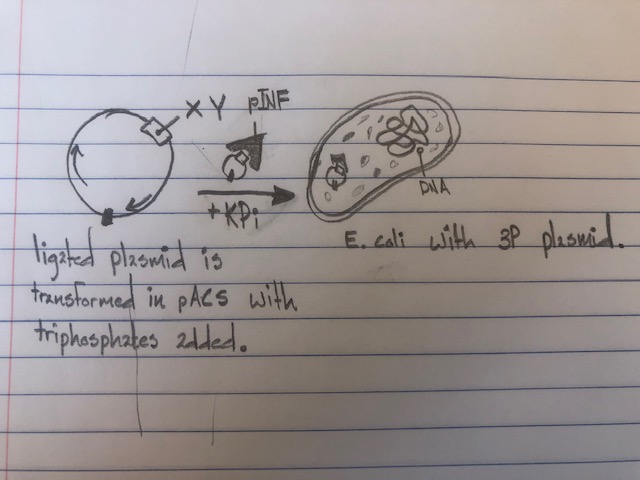 X Y pINF
+KPi
DNA
E. coli with 3P plasmid.
ligated plasmid is
transformed in pACS with
triphosphates added.